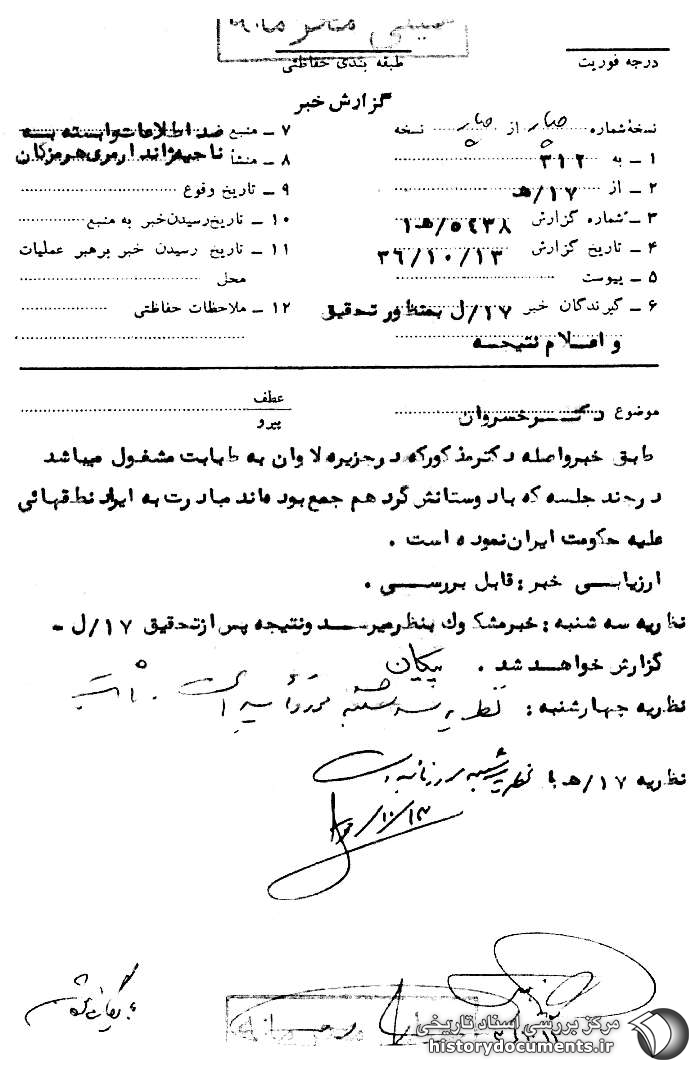 خیلی محرمانه
درجه فوریت
طبقه بندی حفاظتی
گزارش خبر
نسخهٔ شماره چهار از چهار نسخه
۱ ـ به ۳۱۲
۲ ـ از ۱۷/هـ
۳ ـ شماره گزارش ۵۴۳۸/هـ۱
۴ ـ تاریخ گزارش ۳۶/۱۰/۱۳
۵ ـ پیوست
۶ ـ گیرندگان خبر ۱۷/ل بمنظور تحقیق
و اعلام نتیجه
۷ ـ منبع ضد اطلاعات وابسته به
۸ ـ منشأ ناحیه ژاندارمری هرمزگان
۹ ـ تاریخ وقوع
۱۰ ـ تاریخ رسیدن خبر به منبع
۱۱ ـ تاریخ رسیدن خبر برهبر عملیات
محل
۱۲ ـ ملاحظات حفاظتی
موضوع دکتر خسروان
عطف
پیرو
طبق خبر واصله دکتر مذکور که در جزیره لاوان به طبابت مشغول میباشد
در چند جلسه که با دوستانش گرد هم جمع بوده‌اند مبادرت به ایراد نطقهائی
علیه حکومت ایران نموده است .
ارزیابی خبر : قابل بررسی .
نظریه سه شنبه : خبر مشکوک بنظر میرسد و نتیجه پس از تحقیق ۱۷/ل -
گزارش خواهد شد . پیکان
نظریه چهارشنبه : نظریه سه شنبه مورد تأیید است .
نظریه ۱۷/هـ با نظریه
۱۰/۱۳
مرکز بررسی اسناد تاریخی
historydocuments.ir